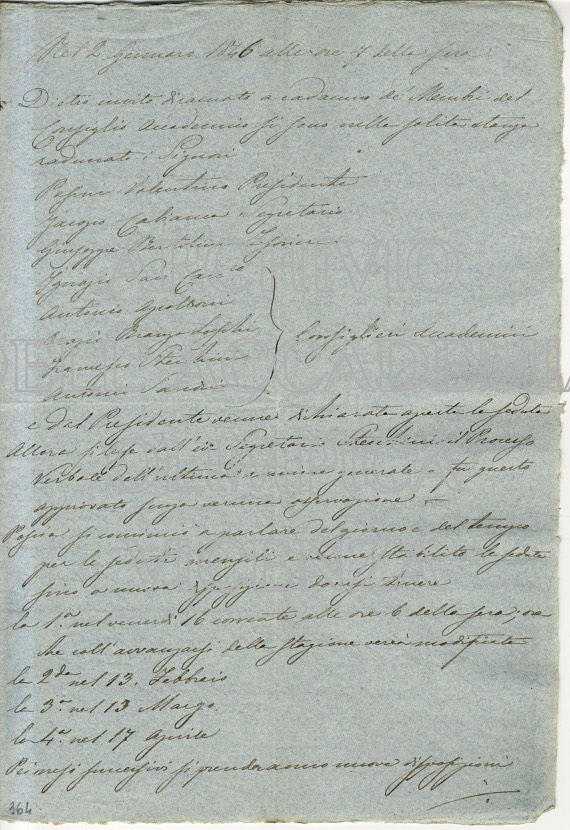 Nel 2 Gennaro 1846 alle ore 7 della sera
Dietro invito diramato a cadauno de' Membri del
Consiglio Accademico si sono nella solita stanza
radunati i Signori
Pasini Valentino Presidente
Jacopo Cabianca Segretario
Giuseppe Bertolini
Ignazio Savi Can.co
Antonio
Orazio Branzo Loschi
Francesco
Antonio
Consiglieri Accademici
e dal Presidente venne dichiarata aperta la seduta
Allora si lesse dall' Segretario il Processo
Verbale dell'ultima riunione generale e fu questo
approvato senza veruna osservazione
Poscia si cominciò a parlare del giorno e del tempo
per le sedute mensili e venne stabilito le sedute
fino a nuova disposizione doversi tenere
la 1.a nel venerdì 16 corrente alle ore 6 della sera, ora
che coll'avvanzarsi della stagione verrà modificata
la 2.da nel 13. Febbraio
la 3.a nel 13 Marzo
la 4.a nel 17 Aprile
Pei mesi successivi si prenderanno nuove disposizioni
364
ARCHIVIO